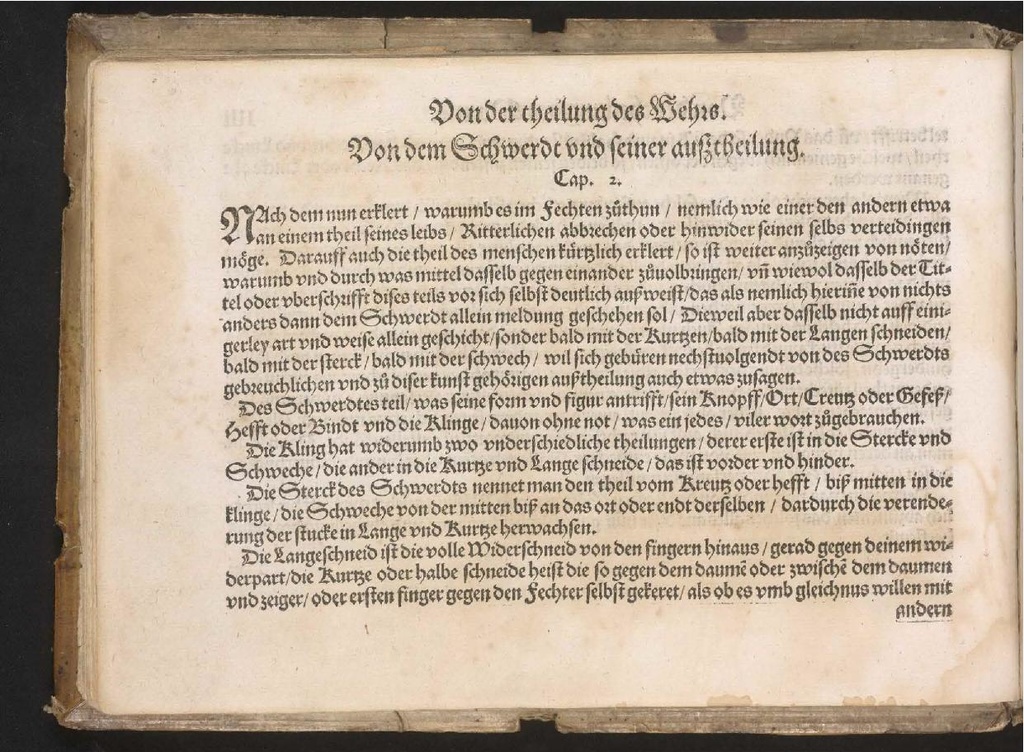 Von der theilung des Wehrs.
Von dem Schwerdt vnd seiner außtheilung.
Cap. 2.
NAch dem nun erklert / warumb es im Fechten zůthun / nemlich wie einer den andern etwa
an einem theil seines leibs / Ritterlichen abbrechen oder hinwider seinen selbs verteidingen
möge. Darauff auch die theil des menschen kürtzlich erklert / so ist weiter anzůzeigen von nöten /
warumb vnd durch was mittel dasselb gegen einander zůuolbringen / vñ wiewol dasselb der Tit⸗
tel oder vberschrifft dises teils vor sich selbst deutlich außweist / das als nemlich hieriñe von nichts
anders dann dem Schwerdt allein meldung geschehen sol / Dieweil aber dasselb nicht auff eini⸗
gerley art vnd weise allein geschicht / sonder bald mit der Kurtzen / bald mit der Langen schneiden /
bald mit der sterck / bald mit der schwech / wil sich gebüren nechstuolgendt von des Schwerdts
gebreuchlichen vnd zů diser kunst gehörigen außtheilung auch etwas zusagen.
Des Schwerdtes teil / was seine form vnd figur antrifft / sein Knopff / Ort / Creutz oder Gefeß /
Hefft oder Bindt vnd die Klinge / dauon ohne not / was ein jedes / viler wort zůgebrauchen.
Die Kling hat widerumb zwo vnderschiedliche theilungen / derer erste ist in die Stercke vnd
Schweche / die ander in die Kurtze vnd Lange schneide / das ist vorder vnd hinder.
Die Sterck des Schwerdts nennet man den theil vom Kreutz oder hefft / biß mitten in die
klinge / die Schweche von der mitten biß an das ort oder endt derselben / dardurch die verende⸗
rung der stucke in Lange vnd Kurtze herwachsen.
Die Langeschneid ist die volle Widerschneid von den fingern hinaus / gerad gegen deinem wi⸗
derpart / die Kurtze oder halbe schneide heist die so gegen dem daumē oder zwischē dem daumen
vnd zeiger / oder ersten finger gegen den Fechter selbst gekeret / als ob es vmb gleichnus willen mit
andern